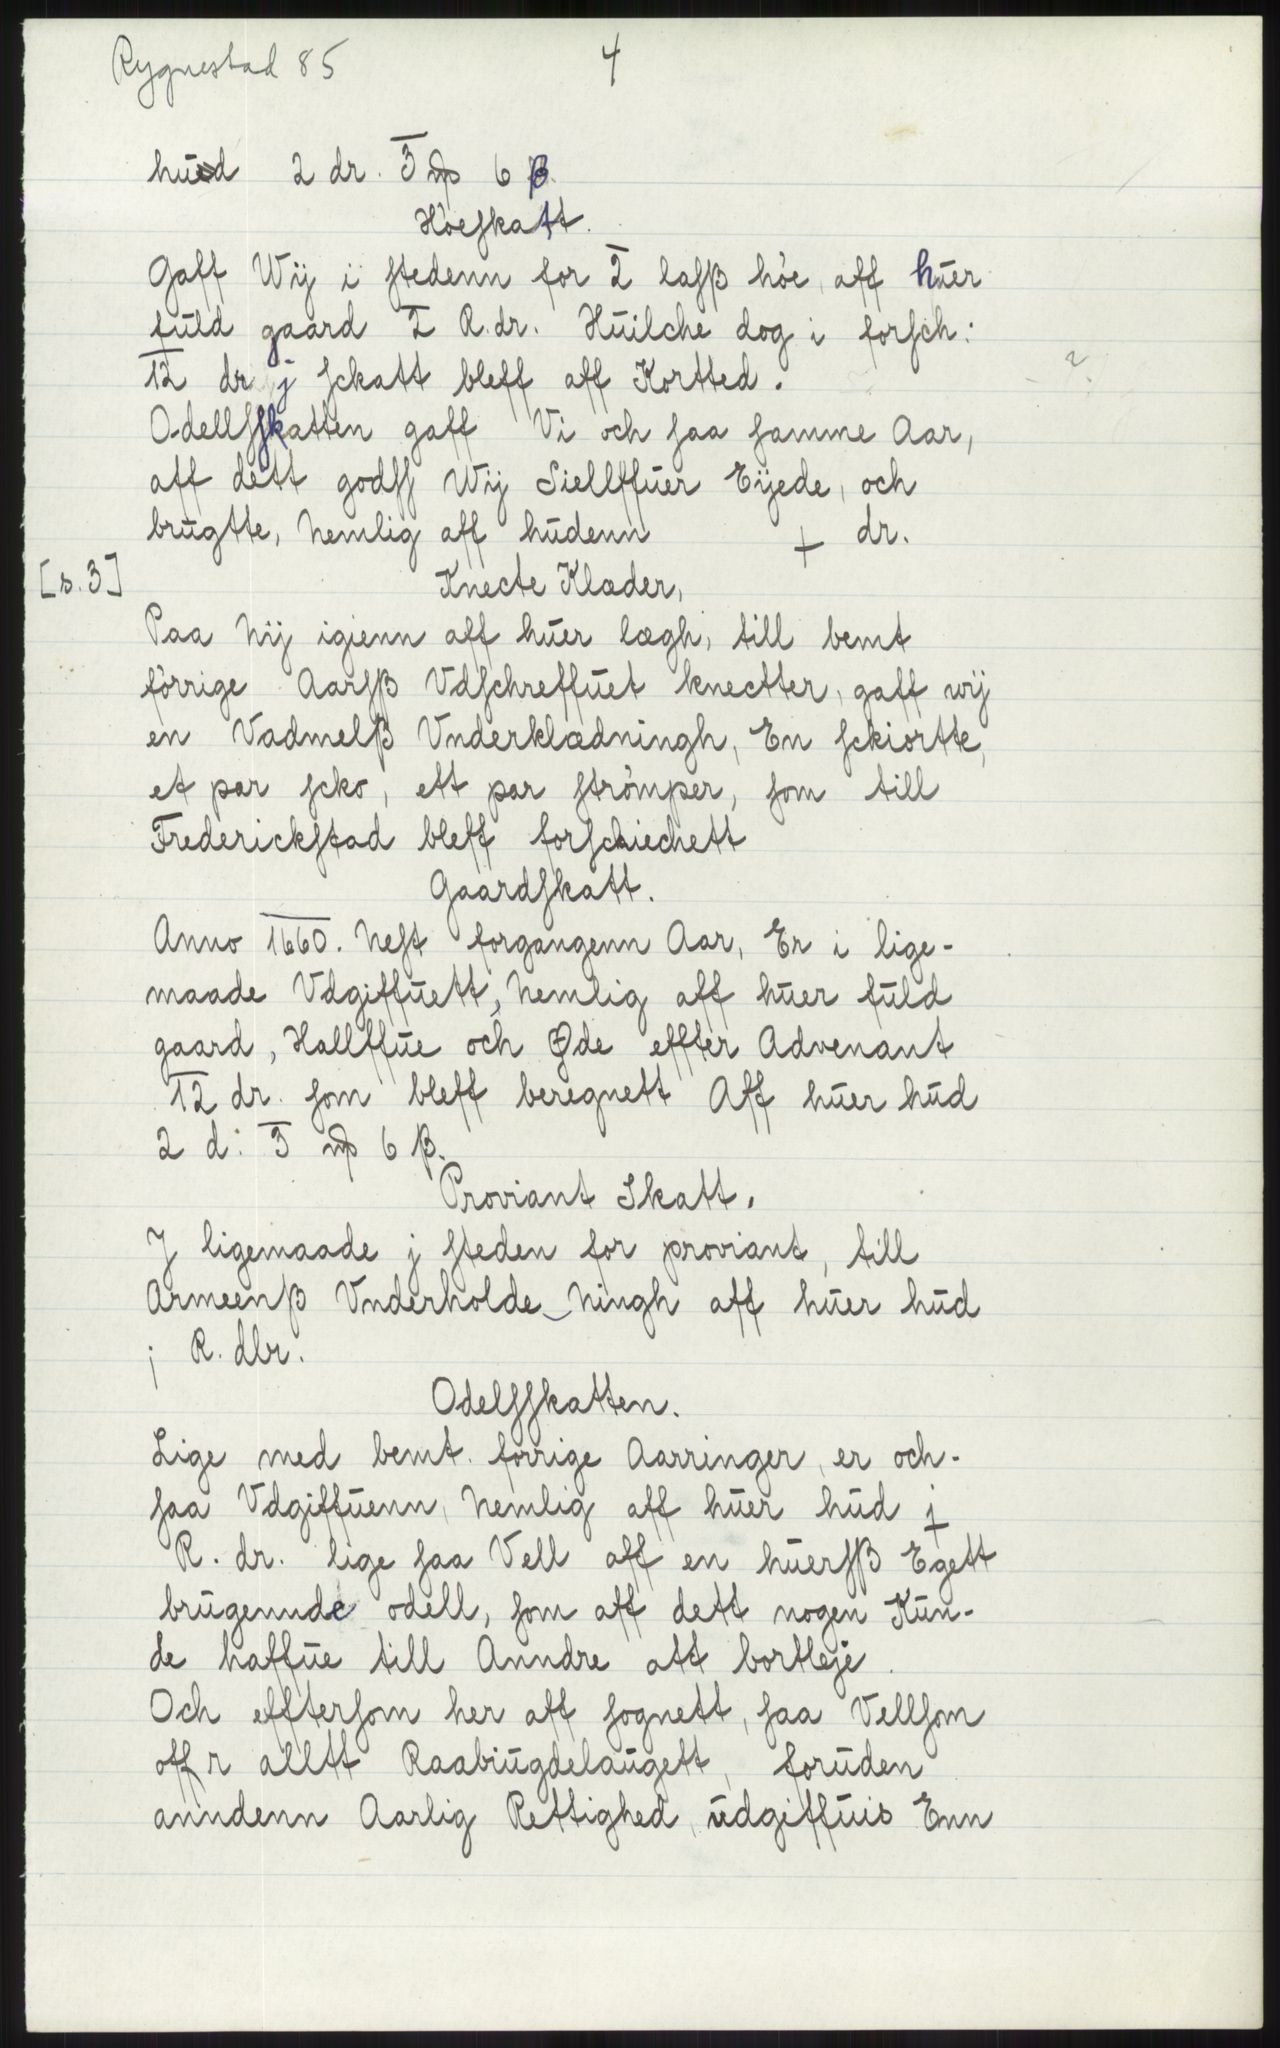 Rygnestad 85 4
hud 2 dr. 3 mþ 6 ß.
Höeſkatt.
Gaff Wij i ſtedenn for 2 laſß höe, aff huer
fuld gaard 2 R.dr. Huilche dog i forſch:
12 dr j ſckatt bleff aff Kortted. ?
Odellſſkatten gaff Vi och ſaa ſamme Aar,
aff dett godſſ Wij Siellffuer Eijede, och
brugtte, Nemlig aff hudenn + dr.
[s. 3] Knecte Klæder,
Paa Nij igienn aff huer lægh, till bemt
förrige Aarſß Vdſchreffuet knectter, gaff wij
en Vadmelß Vnderklædningh, En ſckiortte,
et par ſcko, ett par ſtrömper, ſom till
Frederickſtad bleff forſchiechett
Gaardſkatt.
Anno 1660. Neſt forgangenn Aar, Er i lige-
maade Vdgiffuett, Nemlig aff huer fuld
gaard, Hallffue och Øde effter Advenant
12 dr. ſom bleff beregnett Aff huer hud
2 d: 3 mþ 6 ß.
Proviant Skatt.
J ligemaade j ſteden for proviant, till
Armeenß Vnderholde Ningh aff huer hud
j R. dlr.
Odelſſkatten.
Lige med bemt. forrige Aarringer, er och-
ſaa Vdgiffuenn, Nemlig aff huer hud j
R. dr. lige ſaa Vell aff en huerſß Egett
brugennde odell, ſom aff dett nogen Kun-
de haffue till Anndre att bortleje.
Och efftersom her aff ſognett, ſaa Vellſom
aff r alltt Raabiugdelaugett, foruden
anndenn Aarlig Rettighed, udgiffuis Enn